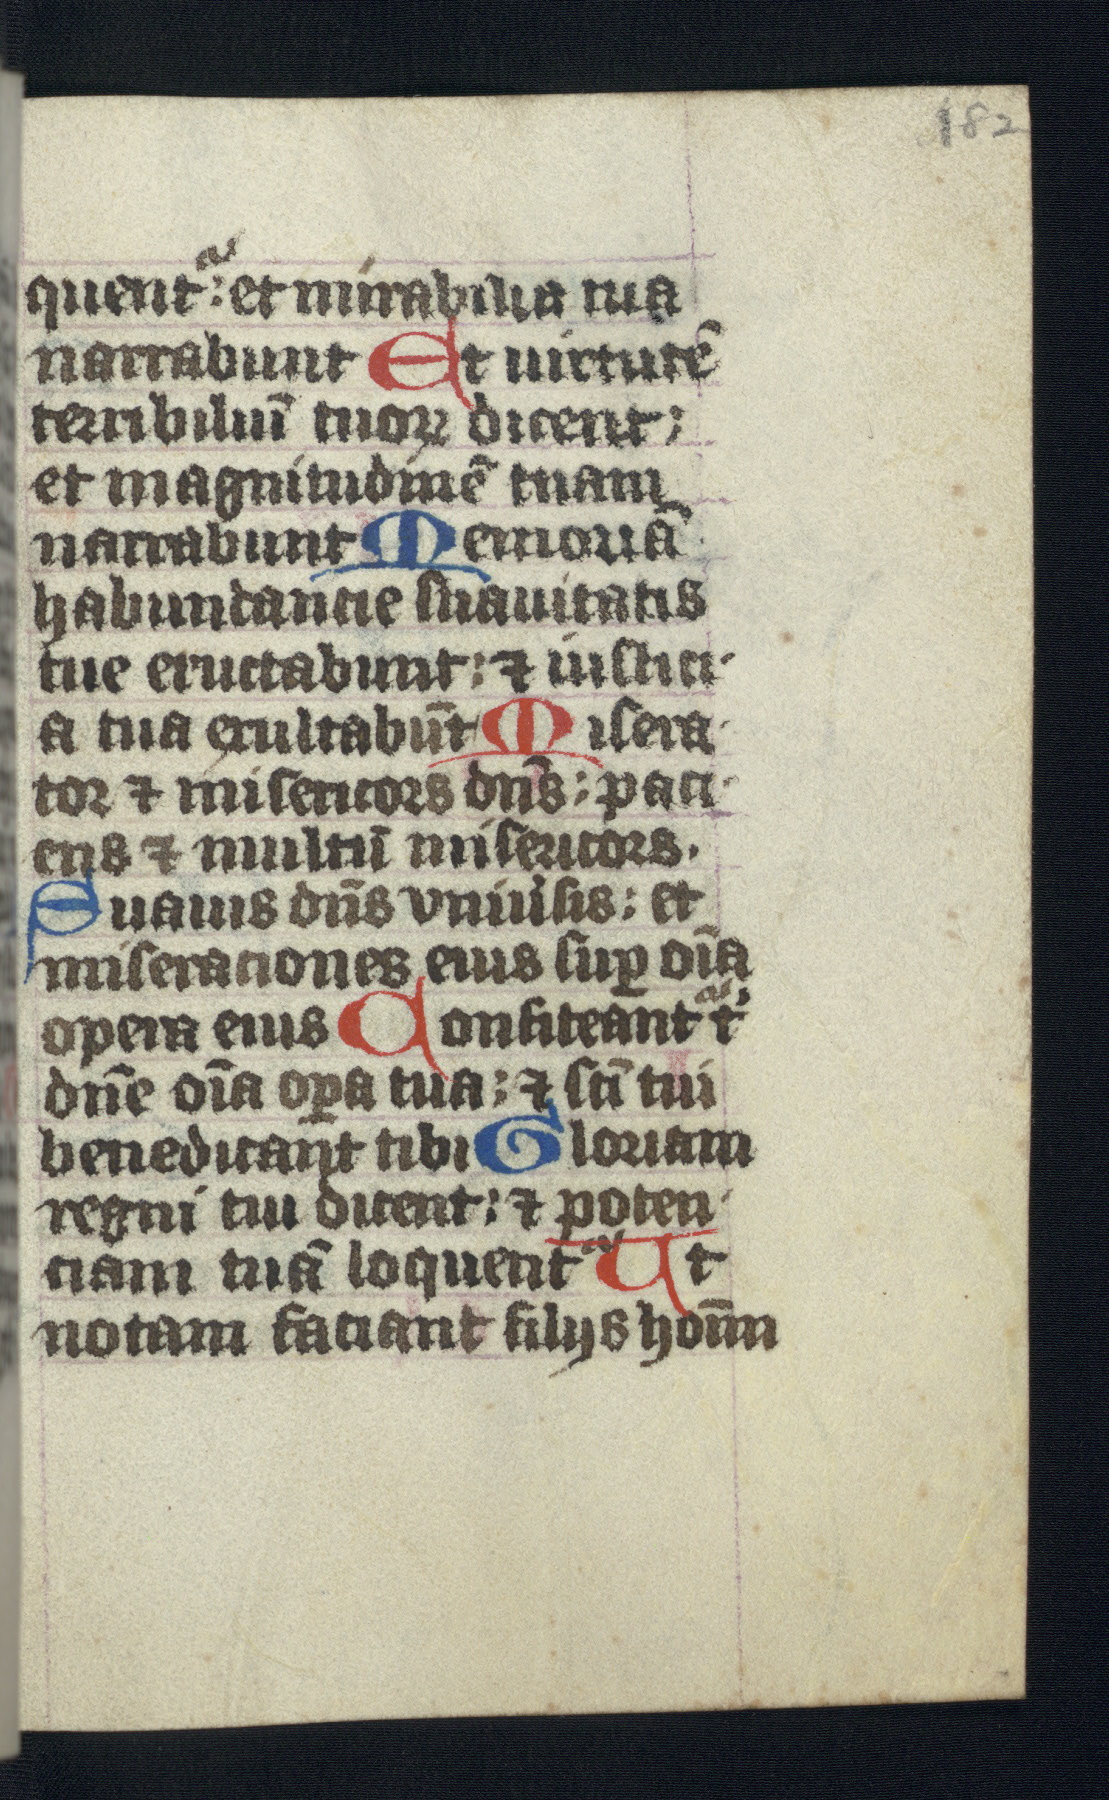 182
quentᷓ: et mirabilia tua
narrabunt Et uirtutē
terribiliū tuoꝝ dicent:
et magnitudinē tuam
narrabunt Memoriā
habundancie suauitatis
tue eructabunt: ⁊ iustici
a tua exultabūt Misera
tor ⁊ misericors dn̄s: paci
ens ⁊ multū misericors.
Suauis dn̄s vniu̾sis: et
miseraciones eius suꝑ oīa
opera eius Confiteantᷓ t'
dn̄e oīa oꝑa tua: ⁊ sc̄i tui
benedicant tibi Gloriam
regni tui dicent: ⁊ poten
ciam tuā loquentᷓ Ut
notam faciant filijs hoīm